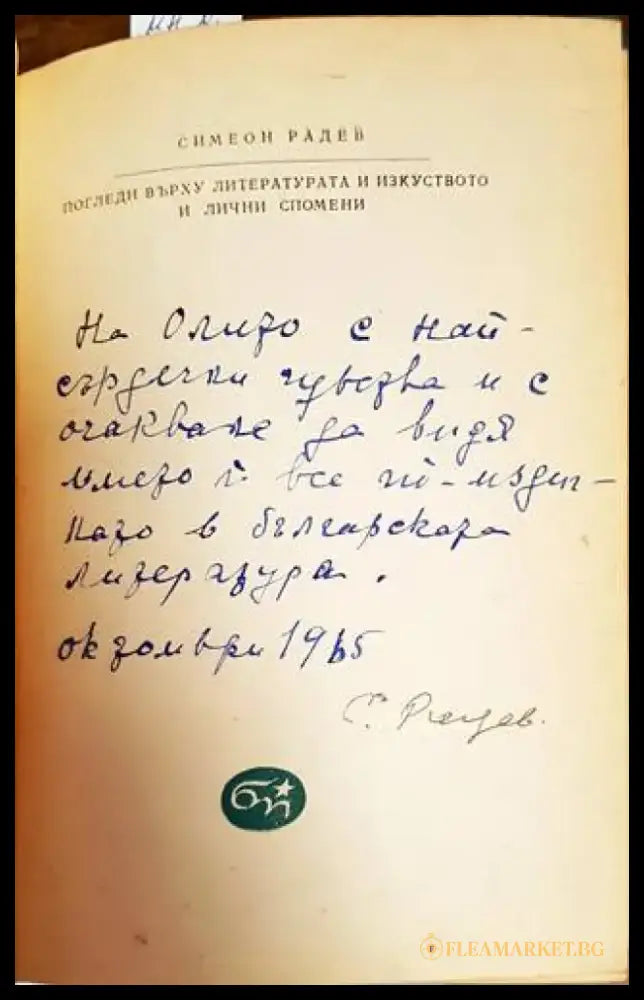 СИМЕОН РАДЕВ
ПОГЛЕДИ ВЪРХУ ЛИТЕРАТУРАТА И ИЗКУСТВОТО
И ЛИЧНИ СПОМЕНИ
На с най-
сърдечни чувства и с
очакване да видя
името ѝ все по-издиг-
нато в българската
литература.
октомври 1965
С. Радев.
бп
FLEAMARKET.BG